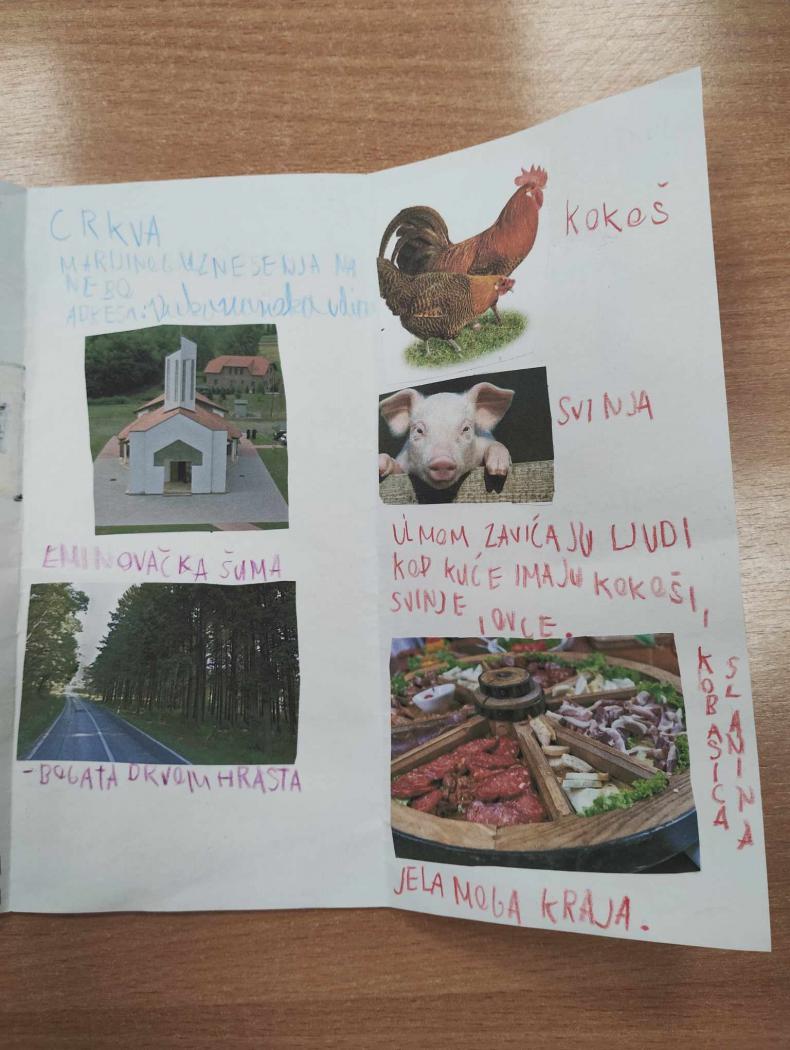 CRKVA
MARIJINOG UZNESENJA NA
NEBO
ADRESA:
EMINOVAČKA ŠUMA
-BOGATA DRVOM HRASTA
KOKOŠ
SVINJA
U MOM ZAVIĆAJU LJUDI
KOD KUĆE IMAJU KOKOŠI,
SVINJE I OVCE.
KOBASICA
SLANINA
JELA MOGA KRAJA.